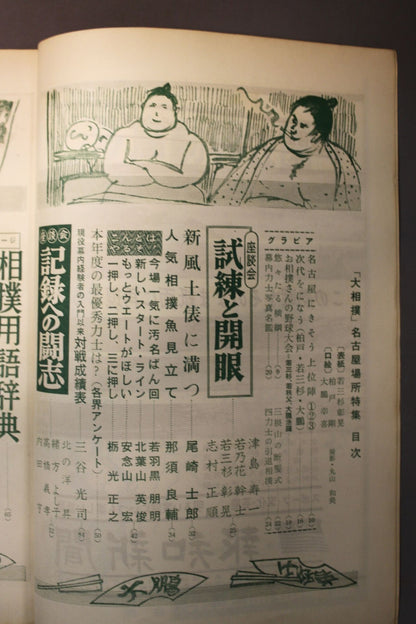 「大相撲」名古屋場所特集 目次
〔表紙〕若三杉彰晃
〔口絵〕柏戸剛
大鵬幸喜
撮影・丸山
グラビア
名古屋にきそう上位陣
次代をになう(柏戸・若三杉・大鵬)
お相撲さんの野球大会
悠々たる横綱
三段山の断髪式
幕内力士写真名鑑
四力士の引退相撲
座談会
試練と開眼
津島寿一
若乃花幹士
若三杉彰晃
志村正順
新風土俵に満つ
尾崎士郎
人気相撲魚見立て
那須良輔
今場所は
こうしてとる
今場所一気に汚名ばん回
若羽黒朋明
新しいスタートライン
北葉山英俊
もっとウエートがほしい
安念山治
一押し、二押し、三に押し
栃光正之
本年度の最優秀力士は?(各界アンケート)
現役幕内経験者の入門以来対戦成績表
座談会
記録への闘志
三谷光司
北の洋昇
緒方よし子
高橋義孝
内田
相撲用語辞典
大鵬
報知新聞